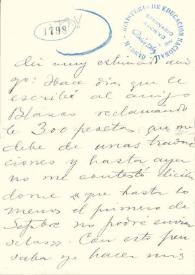 1798
MINISTERIO DE EDUCACIÓN NACIONAL
Mi muy estimado ami
go: Hace días que le
escribí al amigo
Blanas reclamando
le 300 pesetas que me
debe de unas traduc
ciones y hasta ayer
no me contestó dicién
dome que hasta lo
menos el primero de
Sepbre no podrá envia
selas. Con esto pen
saba yo hacer mis